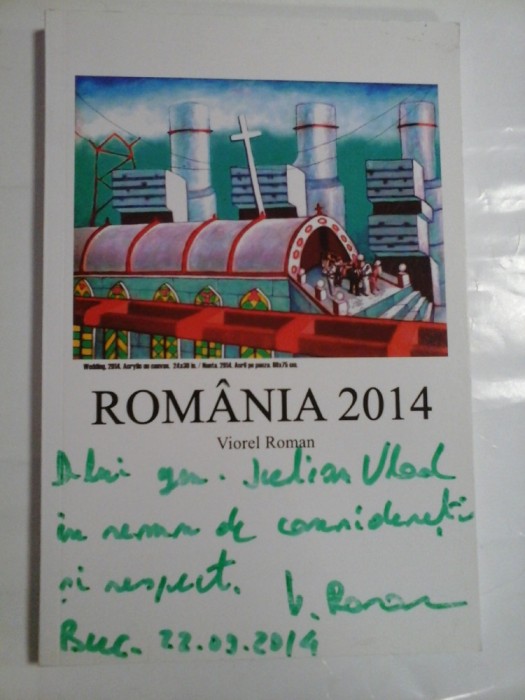 Wedding, 2014. Acrylic on canvas. 24x30 in. / Nunta. 2014. Acril pe panza. 60x75 cm.
ROMÂNIA 2014
Viorel Roman
Dlui gen. Iulian Vlad
în semn de considerație
și respect.
V. Roman
Buc. 22.09.2014